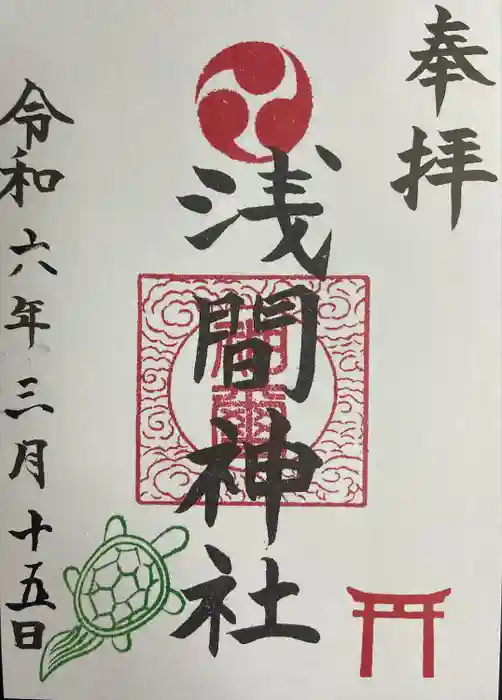 奉拝
浅間神社
令和六年三月十五日